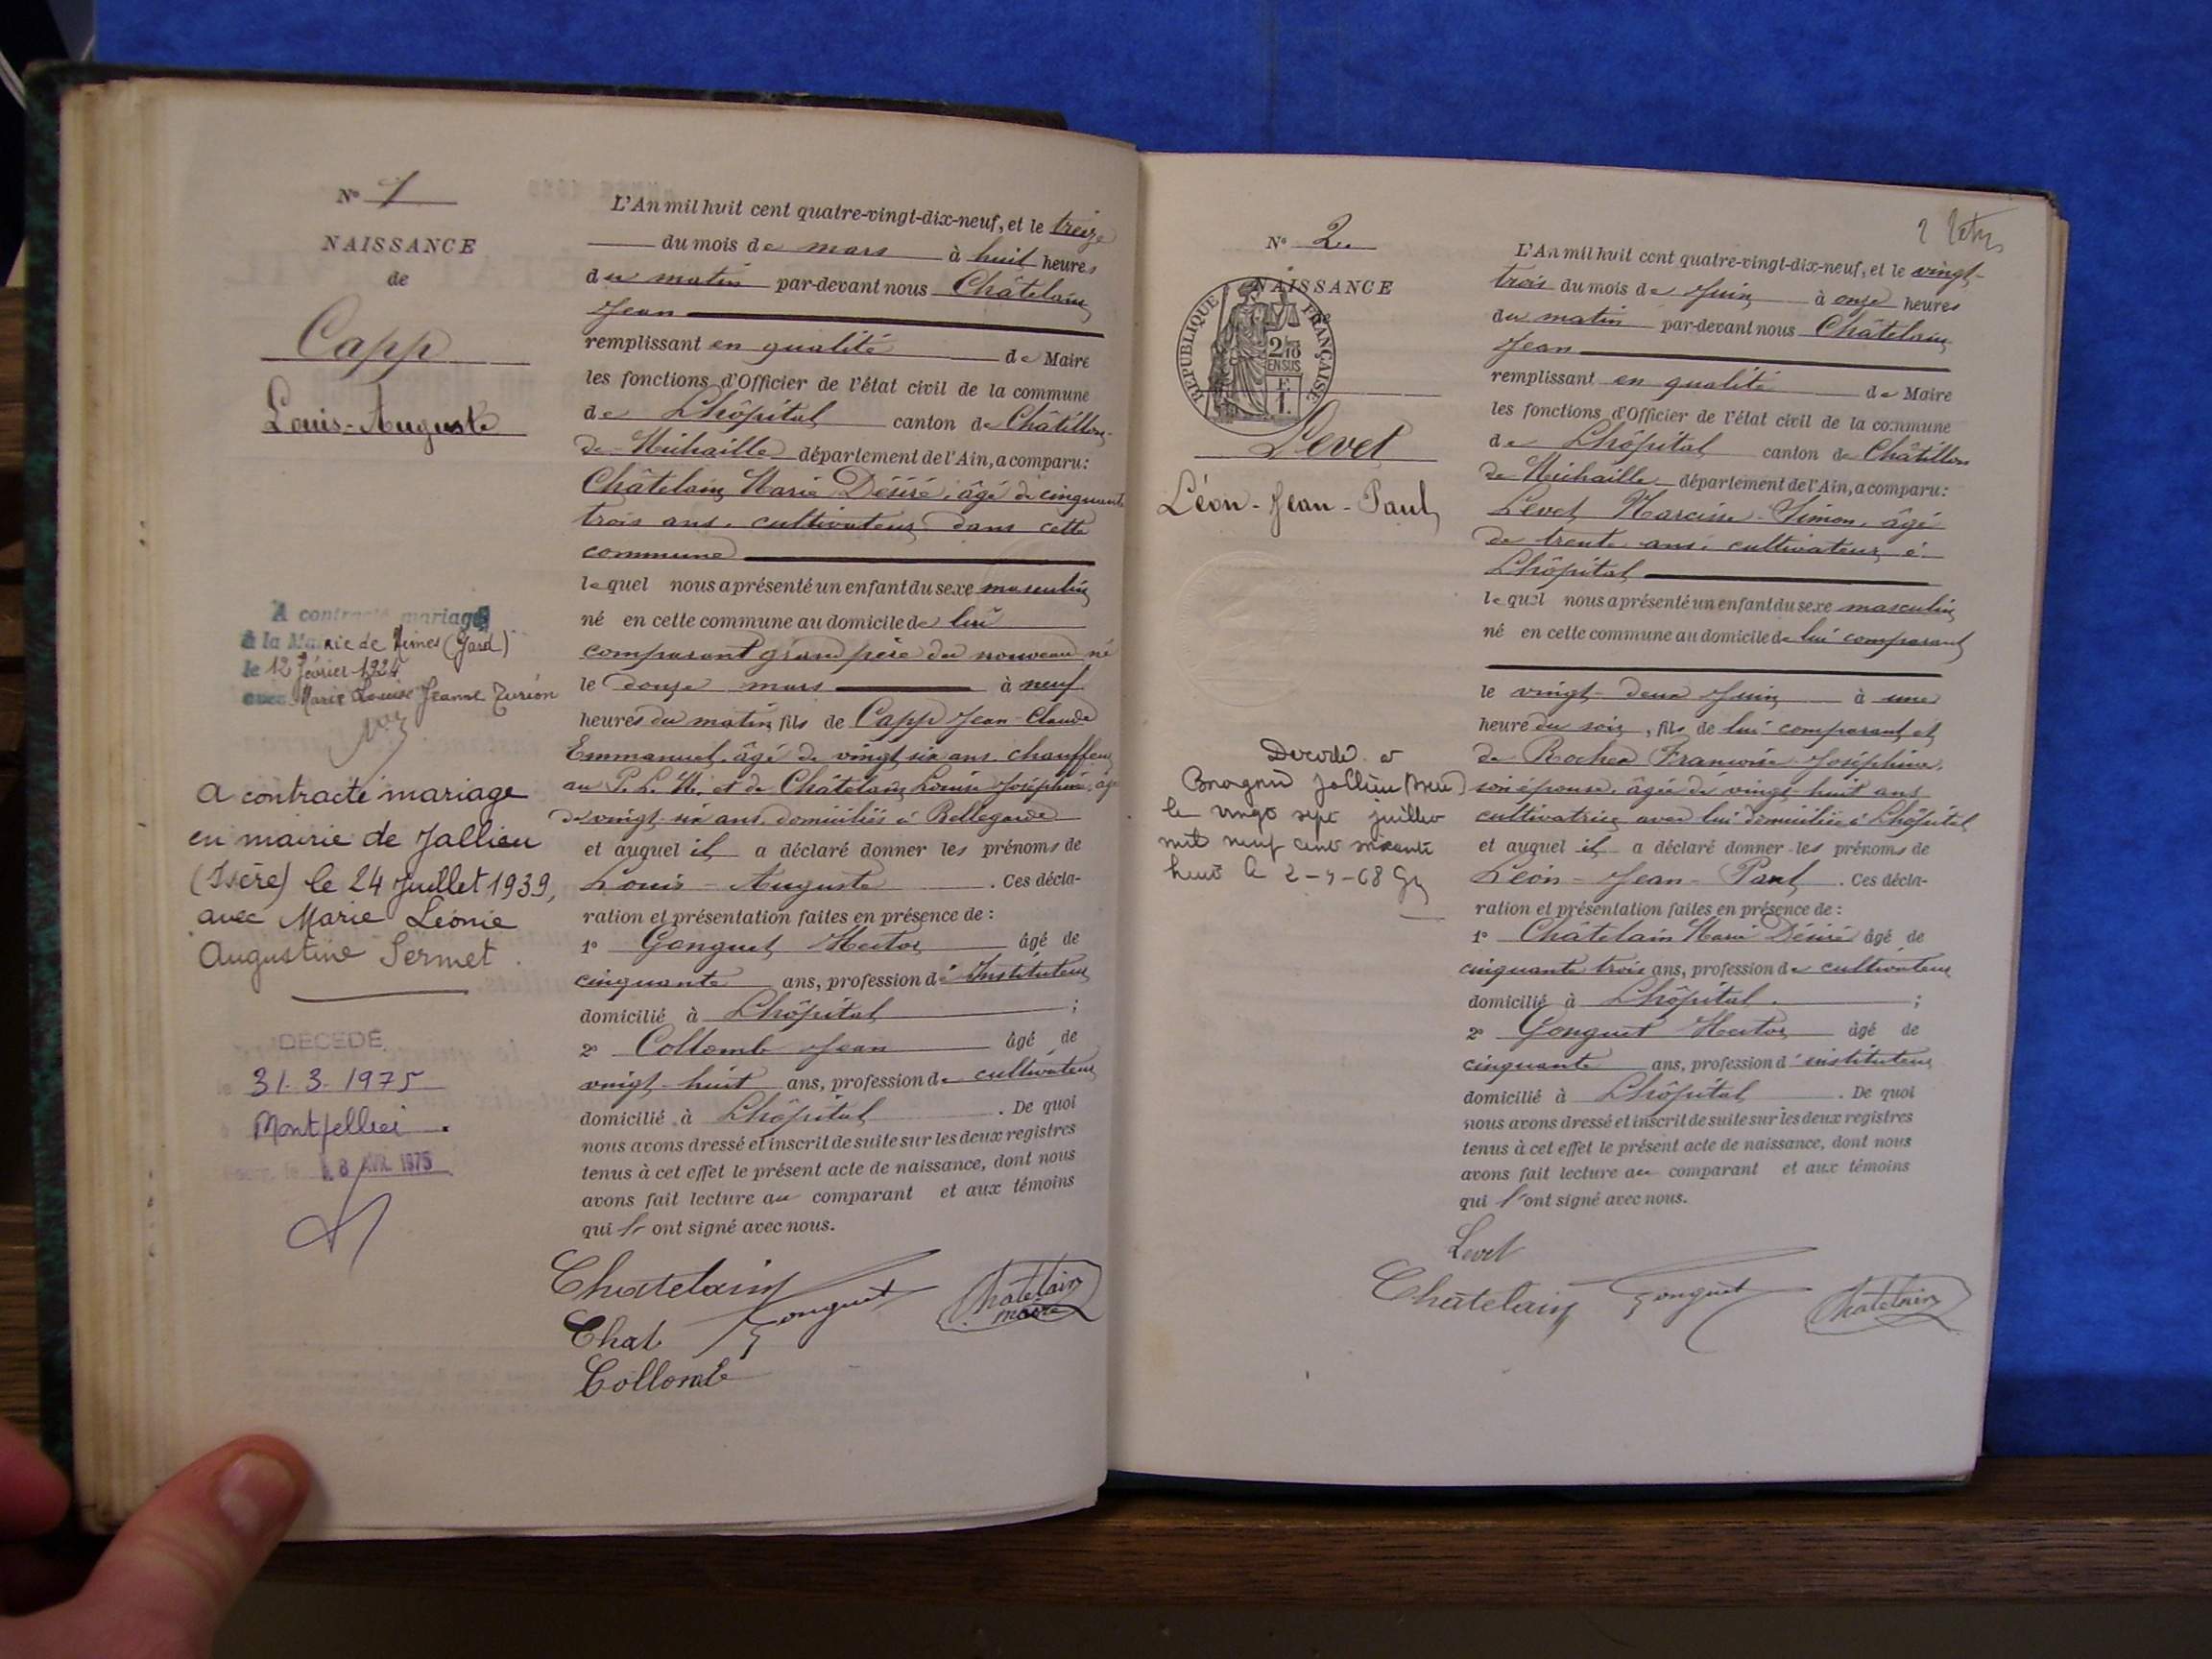 N° 1
NAISSANCE
de
Capp
Louis-Auguste
A contracté mariage
à la Mairie de Nimes (Gard)
le 12 février 1924
avec Marie Louise Jeanne Turion
a contracté mariage
en mairie de Jallieu
(Isère) le 24 Juillet 1939,
avec Marie Léonie
Augustine Sermet.
DECEDE
le 31.3.1975
à Montpellier.
8 AVR. 1975
L'An mil huit cent quatre-vingt-dix-neuf, et le treize
du mois de mars à huit heures
du matin par-devant nous Châtelain
Jean
remplissant en qualité de Maire
les fonctions d'Officier de l'état civil de la commune
de Lhôpital canton de Châtillon-
de-Michaille département de l'Ain, a comparu:
Châtelain Marie Désiré, âgé de cinquante
trois ans, cultivateur dans cette
commune
lequel nous a présenté un enfant du sexe masculin
né en cette commune au domicile de lui
comparant grand père du nouveau né
le douze mars à neuf
heures du matin, fils de Capp Jean-Claude
Emmanuel, âgé de vingt six ans, chauffeur
au P. L. M. et de Châtelain Louise Joséphine, âgée
de vingt-six ans, domiciliés à Bellegarde
et auquel il a déclaré donner les prénoms de
Louis-Auguste. Ces décla-
ration et présentation faites en présence de :
1° Gonguet Hector âgé de
cinquante ans, profession d'Instituteur
domicilié à Lhôpital ;
2° Collomb Jean âgé de
vingt-huit ans, profession de cultivateur
domicilié à Lhôpital. De quoi
nous avons dressé et inscrit de suite sur les deux registres
tenus à cet effet le présent acte de naissance, dont nous
avons fait lecture au comparant et aux témoins
qui l'ont signé avec nous.
Chatelain Gonguet Chatelain
maire
Chat
Collomb
N° 2
NAISSANCE
REPUBLIQUE FRANÇAISE
2/10
EN SUS
E.
1.
Levet
Léon-Jean-Paul
Décédé à
Bourgoin Jallieu (Isère)
le vingt sept juillet
mil neuf cent soixante
huit le 2-9-68
L'An mil huit cent quatre-vingt-dix-neuf, et le vingt-
trois du mois de Juin à onze heures
du matin par-devant nous Châtelain
Jean
remplissant en qualité de Maire
les fonctions d'Officier de l'état civil de la commune
de Lhôpital canton de Châtillon
de Michaille département de l'Ain, a comparu:
Levet Narcisse-Simon, âgé
de trente ans, cultivateur à
Lhôpital
lequel nous a présenté un enfant du sexe masculin
né en cette commune au domicile de lui comparant
le vingt-deux Juin à une
heure du soir, fils de lui comparant et
de Rocher Francoise Joséphine,
son épouse, âgée de vingt-huit ans
cultivatrice avec lui domiciliée à Lhôpital
et auquel il a déclaré donner les prénoms de
Léon-Jean-Paul. Ces décla-
ration et présentation faites en présence de :
1° Châtelain Marie Désiré âgé de
cinquante trois ans, profession de cultivateur
domicilié à Lhôpital. ;
2° Gonguet Hector âgé de
cinquante ans, profession d'instituteur
domicilié à Lhôpital. De quoi
nous avons dressé et inscrit de suite sur les deux registres
tenus à cet effet le présent acte de naissance, dont nous
avons fait lecture au comparant et aux témoins
qui l'ont signé avec nous.
Levet
Châtelain Gonguet Chatelain